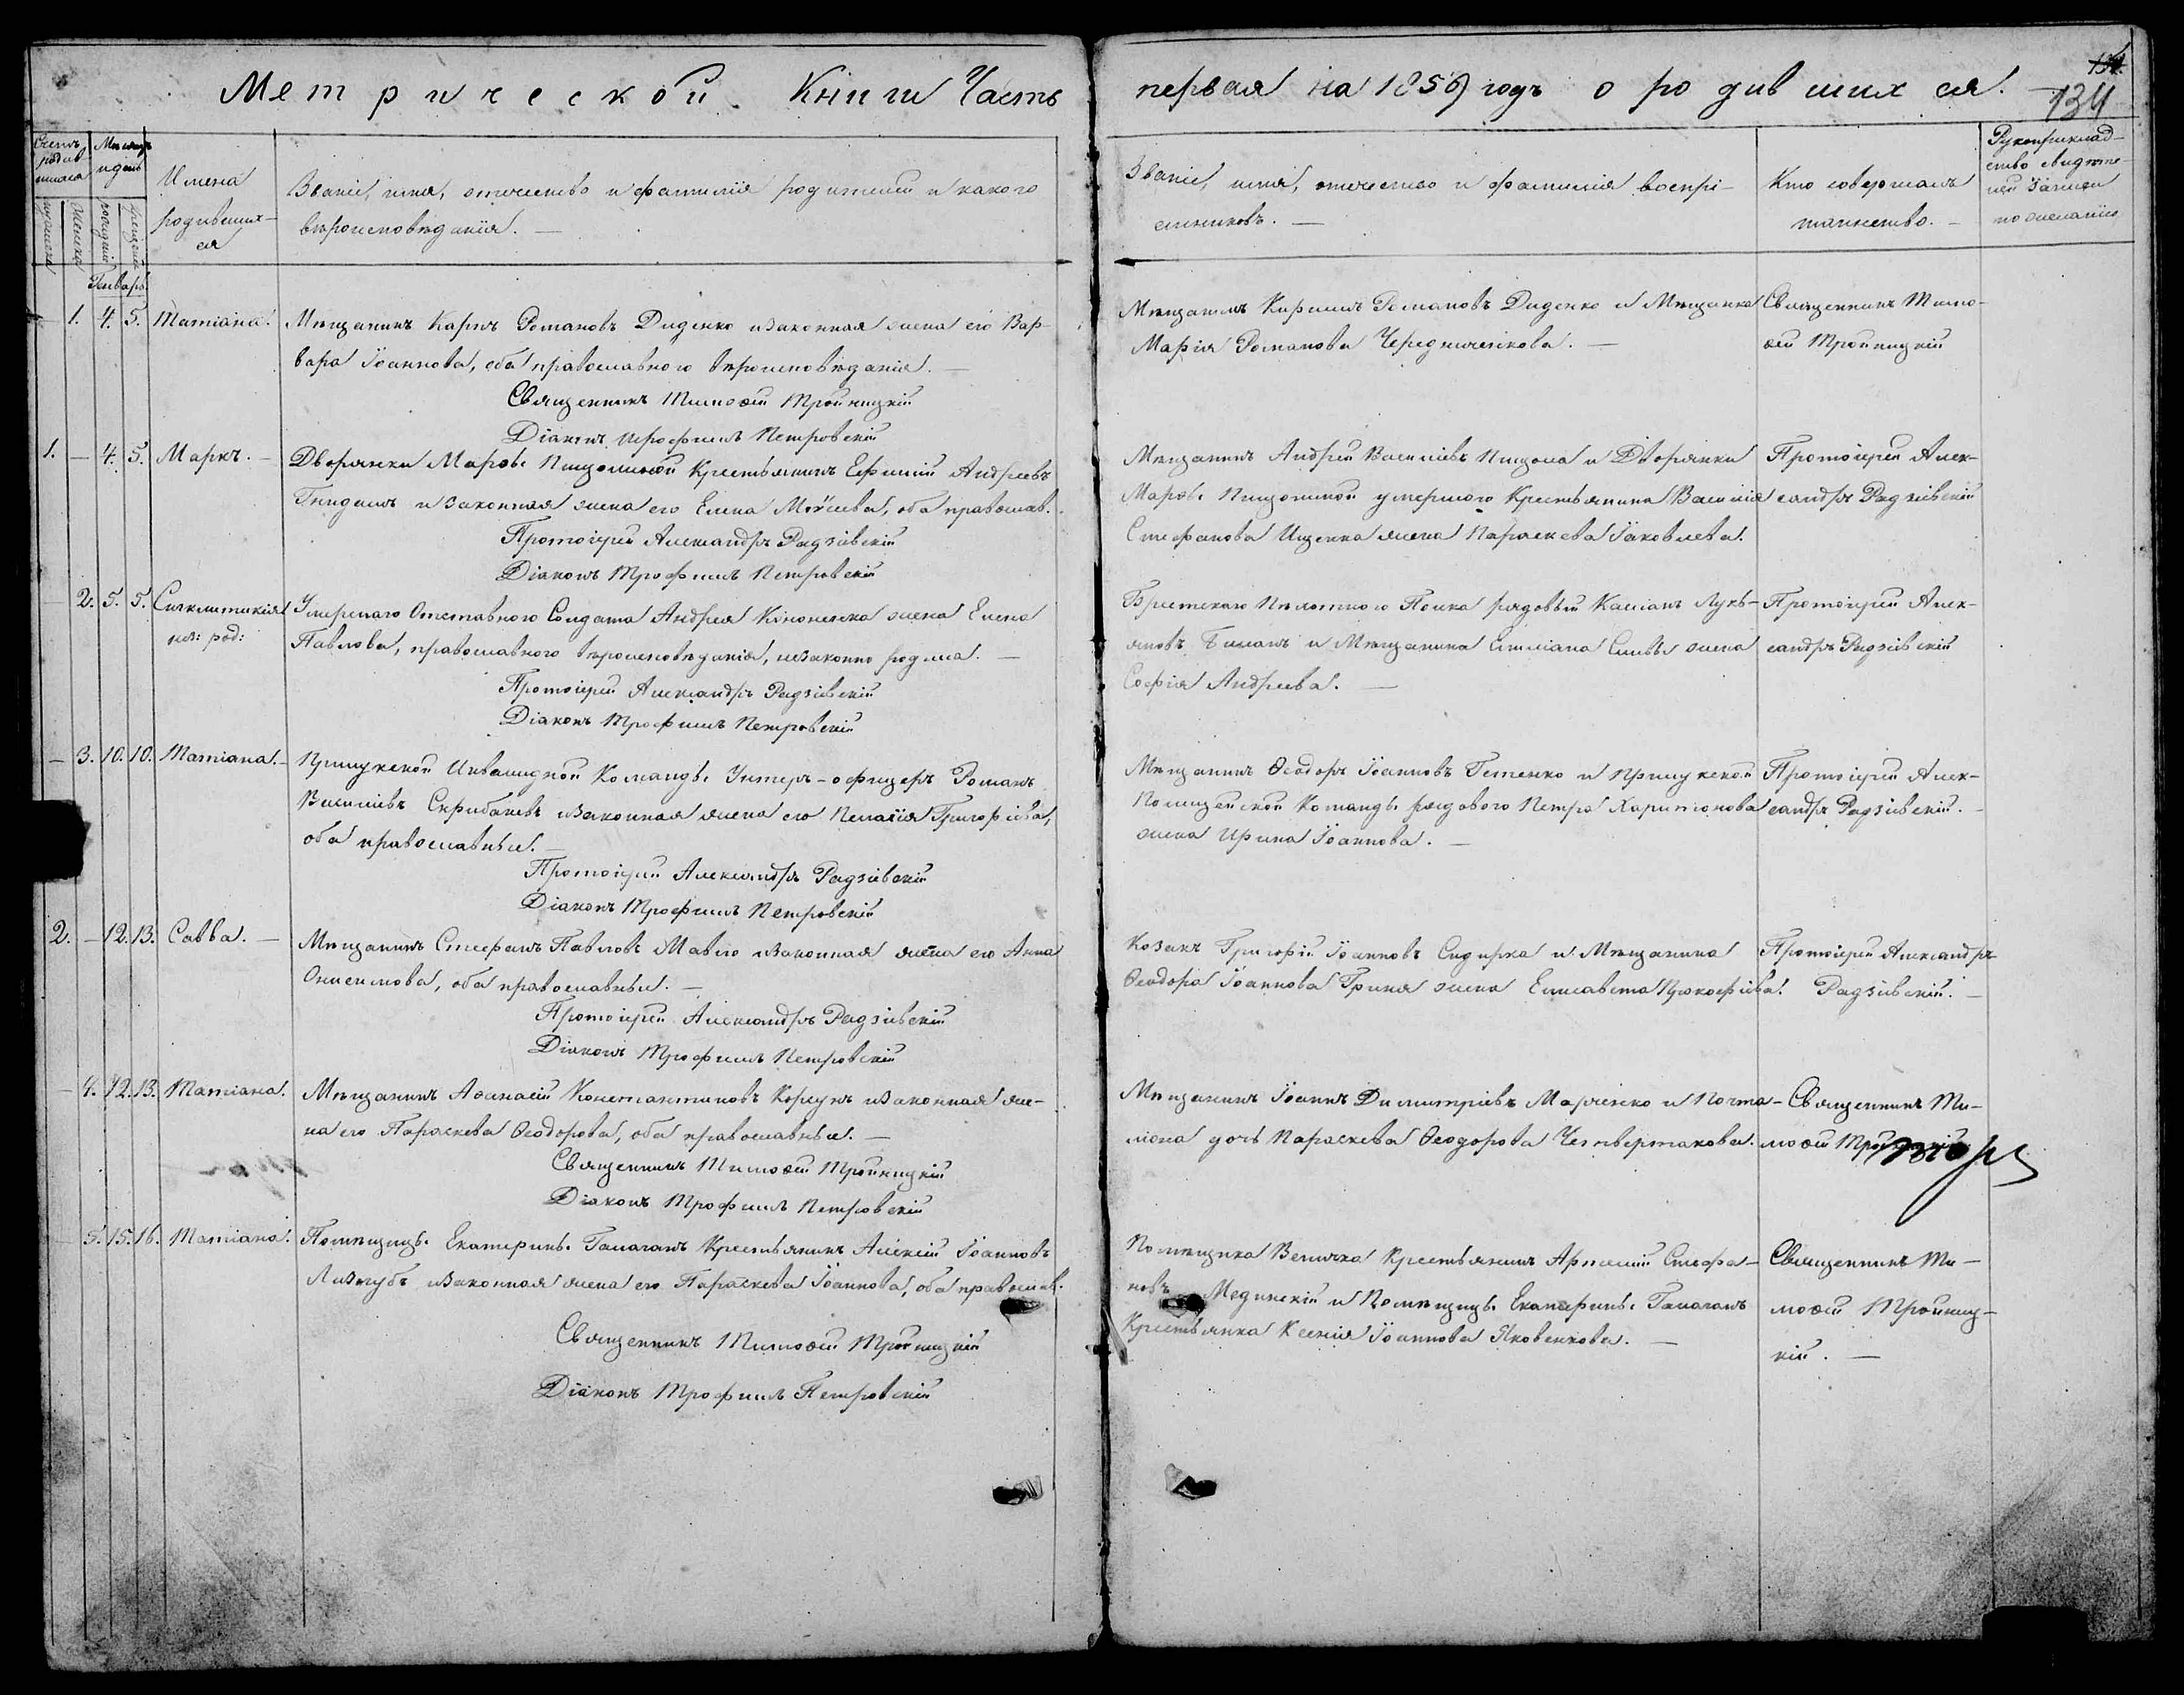 Метрической Книги Часть
первая на 1859 годъ о родившихся.
134
Счетъ родив шихся
Мѣсяцъ и день
Имена родившихся
Званіе, имя, отчество и фамилія родителей и какого
вѣроисповѣданія. —
Званіе, имя, отчество и фамилія воспрі-
емниковъ. —
Кто совершалъ
таинство. —
Рукоприклад-
ство свидѣте-
лей записи
по желанію
мужеска
женска
рожденія
крещенія
Генварь
1. 4. 5. Татіана.
Мѣщанинъ Карпъ Романовъ Диденко и законная жена его Вар-
вара Іоаннова, оба православнаго вѣроисповѣданія. —
Священникъ Тимоѳей Тройницкій
Діаконъ Трофимъ Петровскій
Мѣщанинъ Кирилъ Романовъ Диденко и Мѣщанка
Марія Романова Чередниченкова. —
Священникъ Тимо-
ѳей Тройницкій
1. — 4. 5. Маркъ. —
Дворянки Марѳы Пищолиной Крестьянинъ Ефимій Андреевъ
и законная жена его Елена Моѵсеева, оба православ.
Протоіерей Александръ Радзіевскій
Діаконъ Трофимъ Петровскій
Мѣщанинъ Андрей Василіевъ Пищола и Дворянки
Марѳы Пищолиной умершого Крестьянина Василія
Стефанова Ищенка жена Параскева Іаковлева.
Протоіерей Алек-
сандръ Радзіевскій
2. 5. 5. Сигклитикія
нез: род:
Умершаго Отставного Солдата Андрея Кононенка жена Елена
Павлова, православного вѣроисповѣданія, незаконно родила. —
Протоіерей Александръ Радзіевскій
Діаконъ Трофимъ Петровскій
Брестскаго Пѣхотного Полка рядовый Касіанъ Лукь-
яновъ и Мѣщанина Емиліана жена
Софія Андреева. —
Протоіерей Алек-
сандръ Радзіевскій
— 3. 10. 10. Татіана. —
Прилукской Инвалидной Команды Унтеръ-офицеръ Романъ
Василіевъ Скрибаневъ и законная жена его Пелагія Григоріева,
оба православныи. —
Протоіерей Александръ Радзіевскій
Діаконъ Трофимъ Петровскій
Мѣщанинъ Ѳеодоръ Іоанновъ Гетенко и Прилукской
Полицейской Команды рядового Петра Харитонова
жена Ирина Іоаннова. —
Протоіерей Алек-
сандръ Радзіевскій. —
2. — 12. 13. Савва. —
Мѣщанинъ Стефанъ Павловъ и законная жена его Анна
Онисимова, оба православныи. —
Протоіерей Александръ Радзіевскій
Діаконъ Трофимъ Петровскій
Козакъ Григорій Іоанновъ Сидирка и Мѣщанина
Ѳеодора Іоаннова Гриня жена Елисавета Прокофіева.
Протоіерей Александръ
Радзіевскій. —
— 4. 12. 13. Татіана.
Мѣщанинъ Аѳанасій Константиновъ Корсунъ и законная же-
на его Параскева Ѳеодорова, оба православныи. —
Священникъ Тимоѳей Тройницкій
Діаконъ Трофимъ Петровскій
Мѣщанинъ Іоаннъ Димитріевъ Марченко и Почта-
ліона дочь Параскева Ѳеодорова Четвертакова.
Священникъ Ти-
моѳей Тройницкій
— 5. 15. 16. Татіана.
Помѣщицы Екатерины Галаганъ Крестьянинъ Алексій Іоанновъ
Лизогубъ и законная жена его Параскева Іоаннова, оба православ.
Священникъ Тимоѳей Тройницкій
Діаконъ Трофимъ Петровскій
Помѣщика Величка Крестьянинъ Артемій Стефа-
новъ Мединскій и Помѣщицы Екатерины Галаганъ
Крестьянка Ксенія Іоаннова Яковенкова. —
Священникъ Ти-
моѳей Тройниц-
кій. —